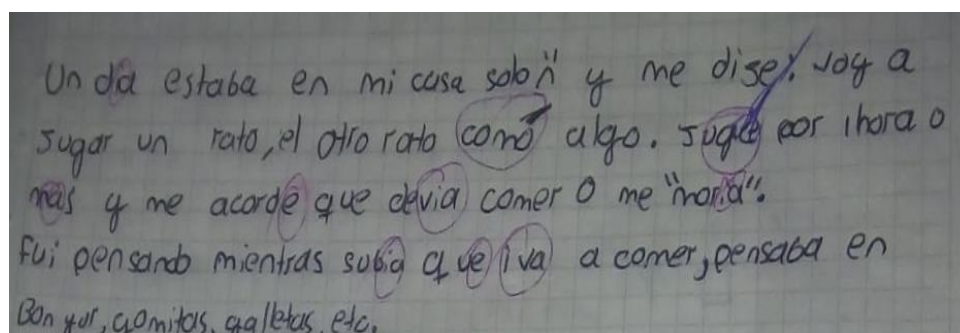 Un día estaba en mi casa solo ñ y me dise: voy a
sugar un rato, el otro rato como algo. Jugé por 1 hora o
más y me acorde que devia comer o me "moria".
Fui pensando mientras subia que iva a comer, pensaba en
Bon yur, gomitas, galletas, etc.